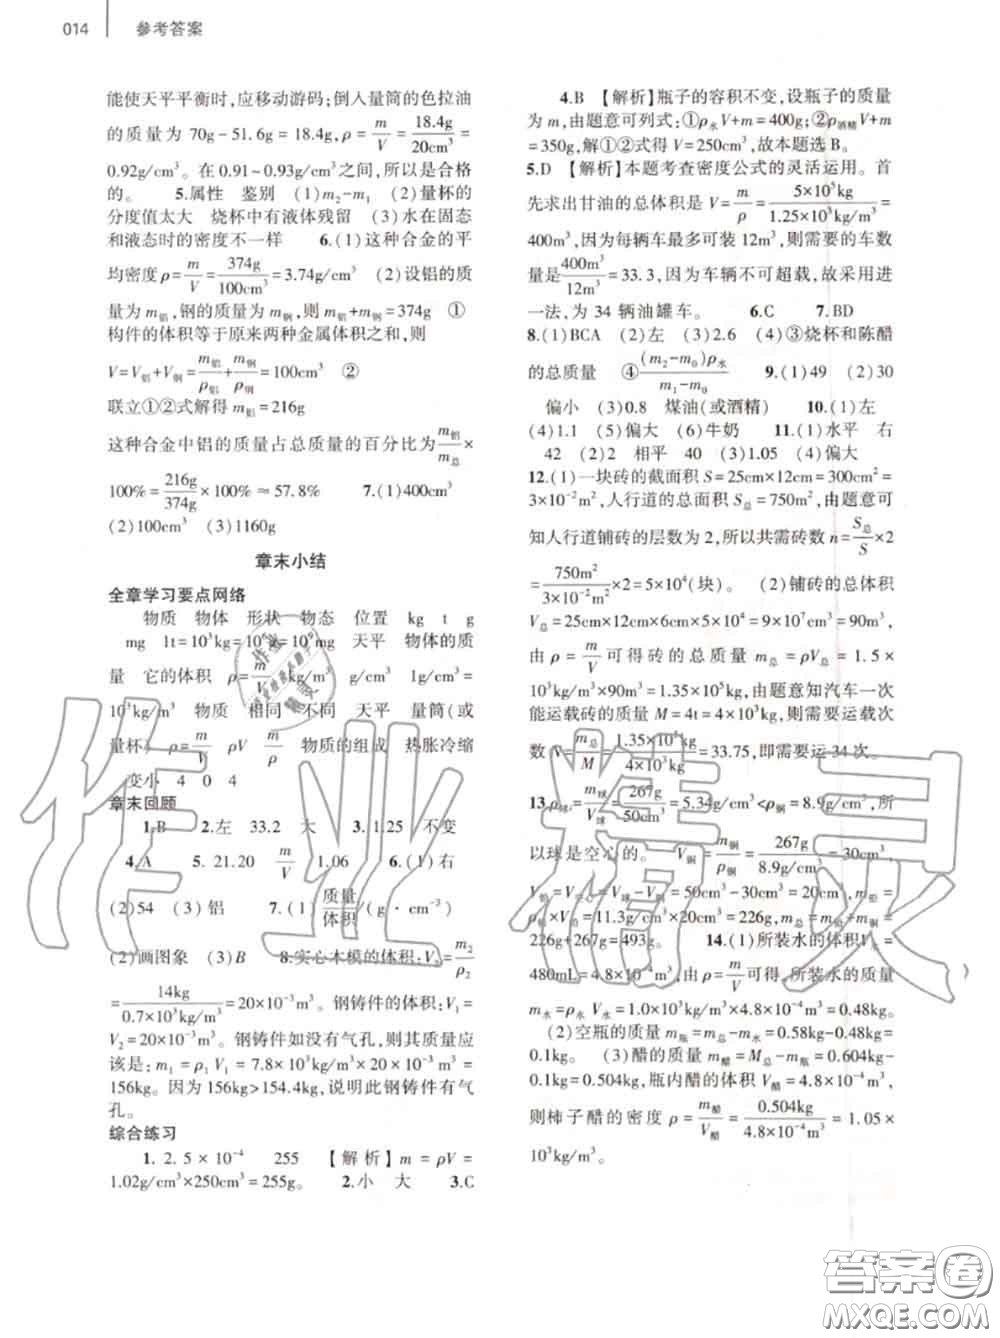 014 参考答案
能使天平平衡时,应移动游码;倒入量筒的色拉油
的质量为 70g-51.6g=18.4g,ρ=m/V=18.4g/20cm³=
0.92g/cm³。在 0.91~0.93g/cm³之间,所以是合格
的。 5.属性 鉴别 (1)m₂-m₁ (2)量杯的
分度值太大 烧杯中有液体残留 (3)水在固态
和液态时的密度不一样 6.(1)这种合金的平
均密度ρ=m/V=374g/100cm³=3.74g/cm³ (2)设铝的质
量为m铝,钢的质量为m钢,则m铝+m钢=374g ①
构件的体积等于原来两种金属体积之和,则
V=V铝+V钢=m铝/ρ铝+m钢/ρ钢=100cm³ ②
联立①②式解得m铝=216g
这种合金中铝的质量占总质量的百分比为m铝/m总×
100%=216g/374g×100%≈57.8% 7.(1)400cm³
(2)100cm³ (3)1160g
章末小结
全章学习要点网络
物质 物体 形状 物态 位置 kg t g
mg 1t=10³kg=10⁶g=10⁹mg 天平 物体的质
量 它的体积 ρ=m/V kg/m³ g/cm³ 1g/cm³=
10³kg/m³ 物质 相同 不同 天平 量筒(或
量杯) ρ=m/V ρV m/ρ 物质的组成 热胀冷缩
变小 4 0 4
章末回顾
1.B 2.左 33.2 大 3.1.25 不变
4.A 5. 21.20 m/V 1.06 6.(1)右
(2)54 (3)铝 7.(1)质量/体积/(g·cm⁻³)
(2)画图象 (3)B 8.实心木模的体积:V₂=m₂/ρ₂
=14kg/0.7×10³kg/m³=20×10⁻³m³。钢铸件的体积:V₁=
V₂=20×10⁻³m³。钢铸件如没有气孔,则其质量应
该是:m₁=ρ₁V₁=7.8×10³kg/m³×20×10⁻³m³=
156kg。因为156kg>154.4kg,说明此钢铸件有气
孔。
综合练习
1. 2.5×10⁻⁴ 255 【解析】m=ρV=
1.02g/cm³×250cm³=255g。 2.小 大 3.C
4.B 【解析】瓶子的容积不变,设瓶子的质量
为m,由题意可列式:①ρ水V+m=400g;②ρ酒精V+m
=350g,解①②式得V=250cm³,故本题选B。
5.D 【解析】本题考查密度公式的灵活运用。首
先求出甘油的总体积是V=m/ρ=5×10⁵kg/1.25×10³kg/m³=
400m³,因为每辆车最多可装12m³,则需要的车数
量是400m³/12m³=33.3,因为车辆不可超载,故采用进
一法,为34辆油罐车。 6.C 7.BD
8.(1)BCA (2)左 (3)2.6 (4)③烧杯和陈醋
的总质量 ④(m₂-m₀)ρ水/m₁-m₀ 9.(1)49 (2)30
偏小 (3)0.8 煤油(或酒精) 10.(1)左
(4)1.1 (5)偏大 (6)牛奶 11.(1)水平 右
42 (2)2 相平 40 (3)1.05 (4)偏大
12.(1)一块砖的截面积S=25cm×12cm=300cm²=
3×10⁻²m²,人行道的总面积S总=750m²,由题意可
知人行道铺砖的层数为2,所以共需砖数n=S总/S×2
=750m²/3×10⁻²m²×2=5×10⁴(块)。 (2)铺砖的总体积
V总=25cm×12cm×6cm×5×10⁴=9×10⁷cm³=90m³,
由ρ=m/V可得砖的总质量m总=ρV总=1.5×
10³kg/m³×90m³=1.35×10⁵kg,由题意知汽车一次
能运载砖的质量M=4t=4×10³kg,则需要运载次
数N=m总/M=1.35×10⁵kg/4×10³kg=33.75,即需要运34次。
13.ρ球=m球/V球=267g/50cm³=5.34g/cm³<ρ铜=8.9g/cm³,所
以球是空心的。 V铜=m铜/ρ铜=267g/8.9g/cm³=30cm³,
V铅=V空心=V球-V铜=50cm³-30cm³=20cm³,m铅=
ρ铅×V空=11.3g/cm³×20cm³=226g,m总=m铅+m铜=
226g+267g=493g。 14.(1)所装水的体积V水=
480mL=4.8×10⁻⁴m³,由ρ=m/V可得,所装水的质量
m水=ρ水V水=1.0×10³kg/m³×4.8×10⁻⁴m³=0.48kg。
(2)空瓶的质量m瓶=m总-m水=0.58kg-0.48kg=
0.1kg。 (3)醋的质量m醋=M总-m瓶=0.604kg-
0.1kg=0.504kg,瓶内醋的体积V醋=4.8×10⁻⁴m³,
则柿子醋的密度ρ=m醋/V醋=0.504kg/4.8×10⁻⁴m³=1.05×
10³kg/m³。
作业精灵
答案卷
MXQE.COM